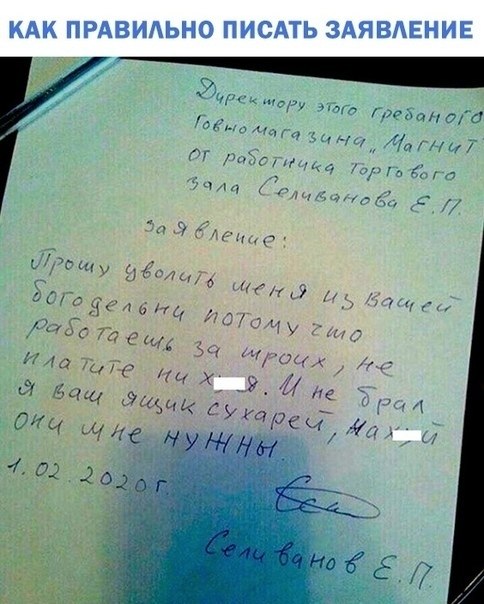 КАК ПРАВИЛЬНО ПИСАТЬ ЗАЯВЛЕНИЕ
Директору этого гребаного
Говномагазина „Магнит
от работника Торгового
зала Селиванова Е.П.
Заявление:
Прошу уволить меня из Вашей
богодельни потому что
работаешь за троих, не
платите ни х я. И не брал
я ваш ящик сухарей, нах й
они мне нужны
1.02.2020г.
Селиванов Е.П.